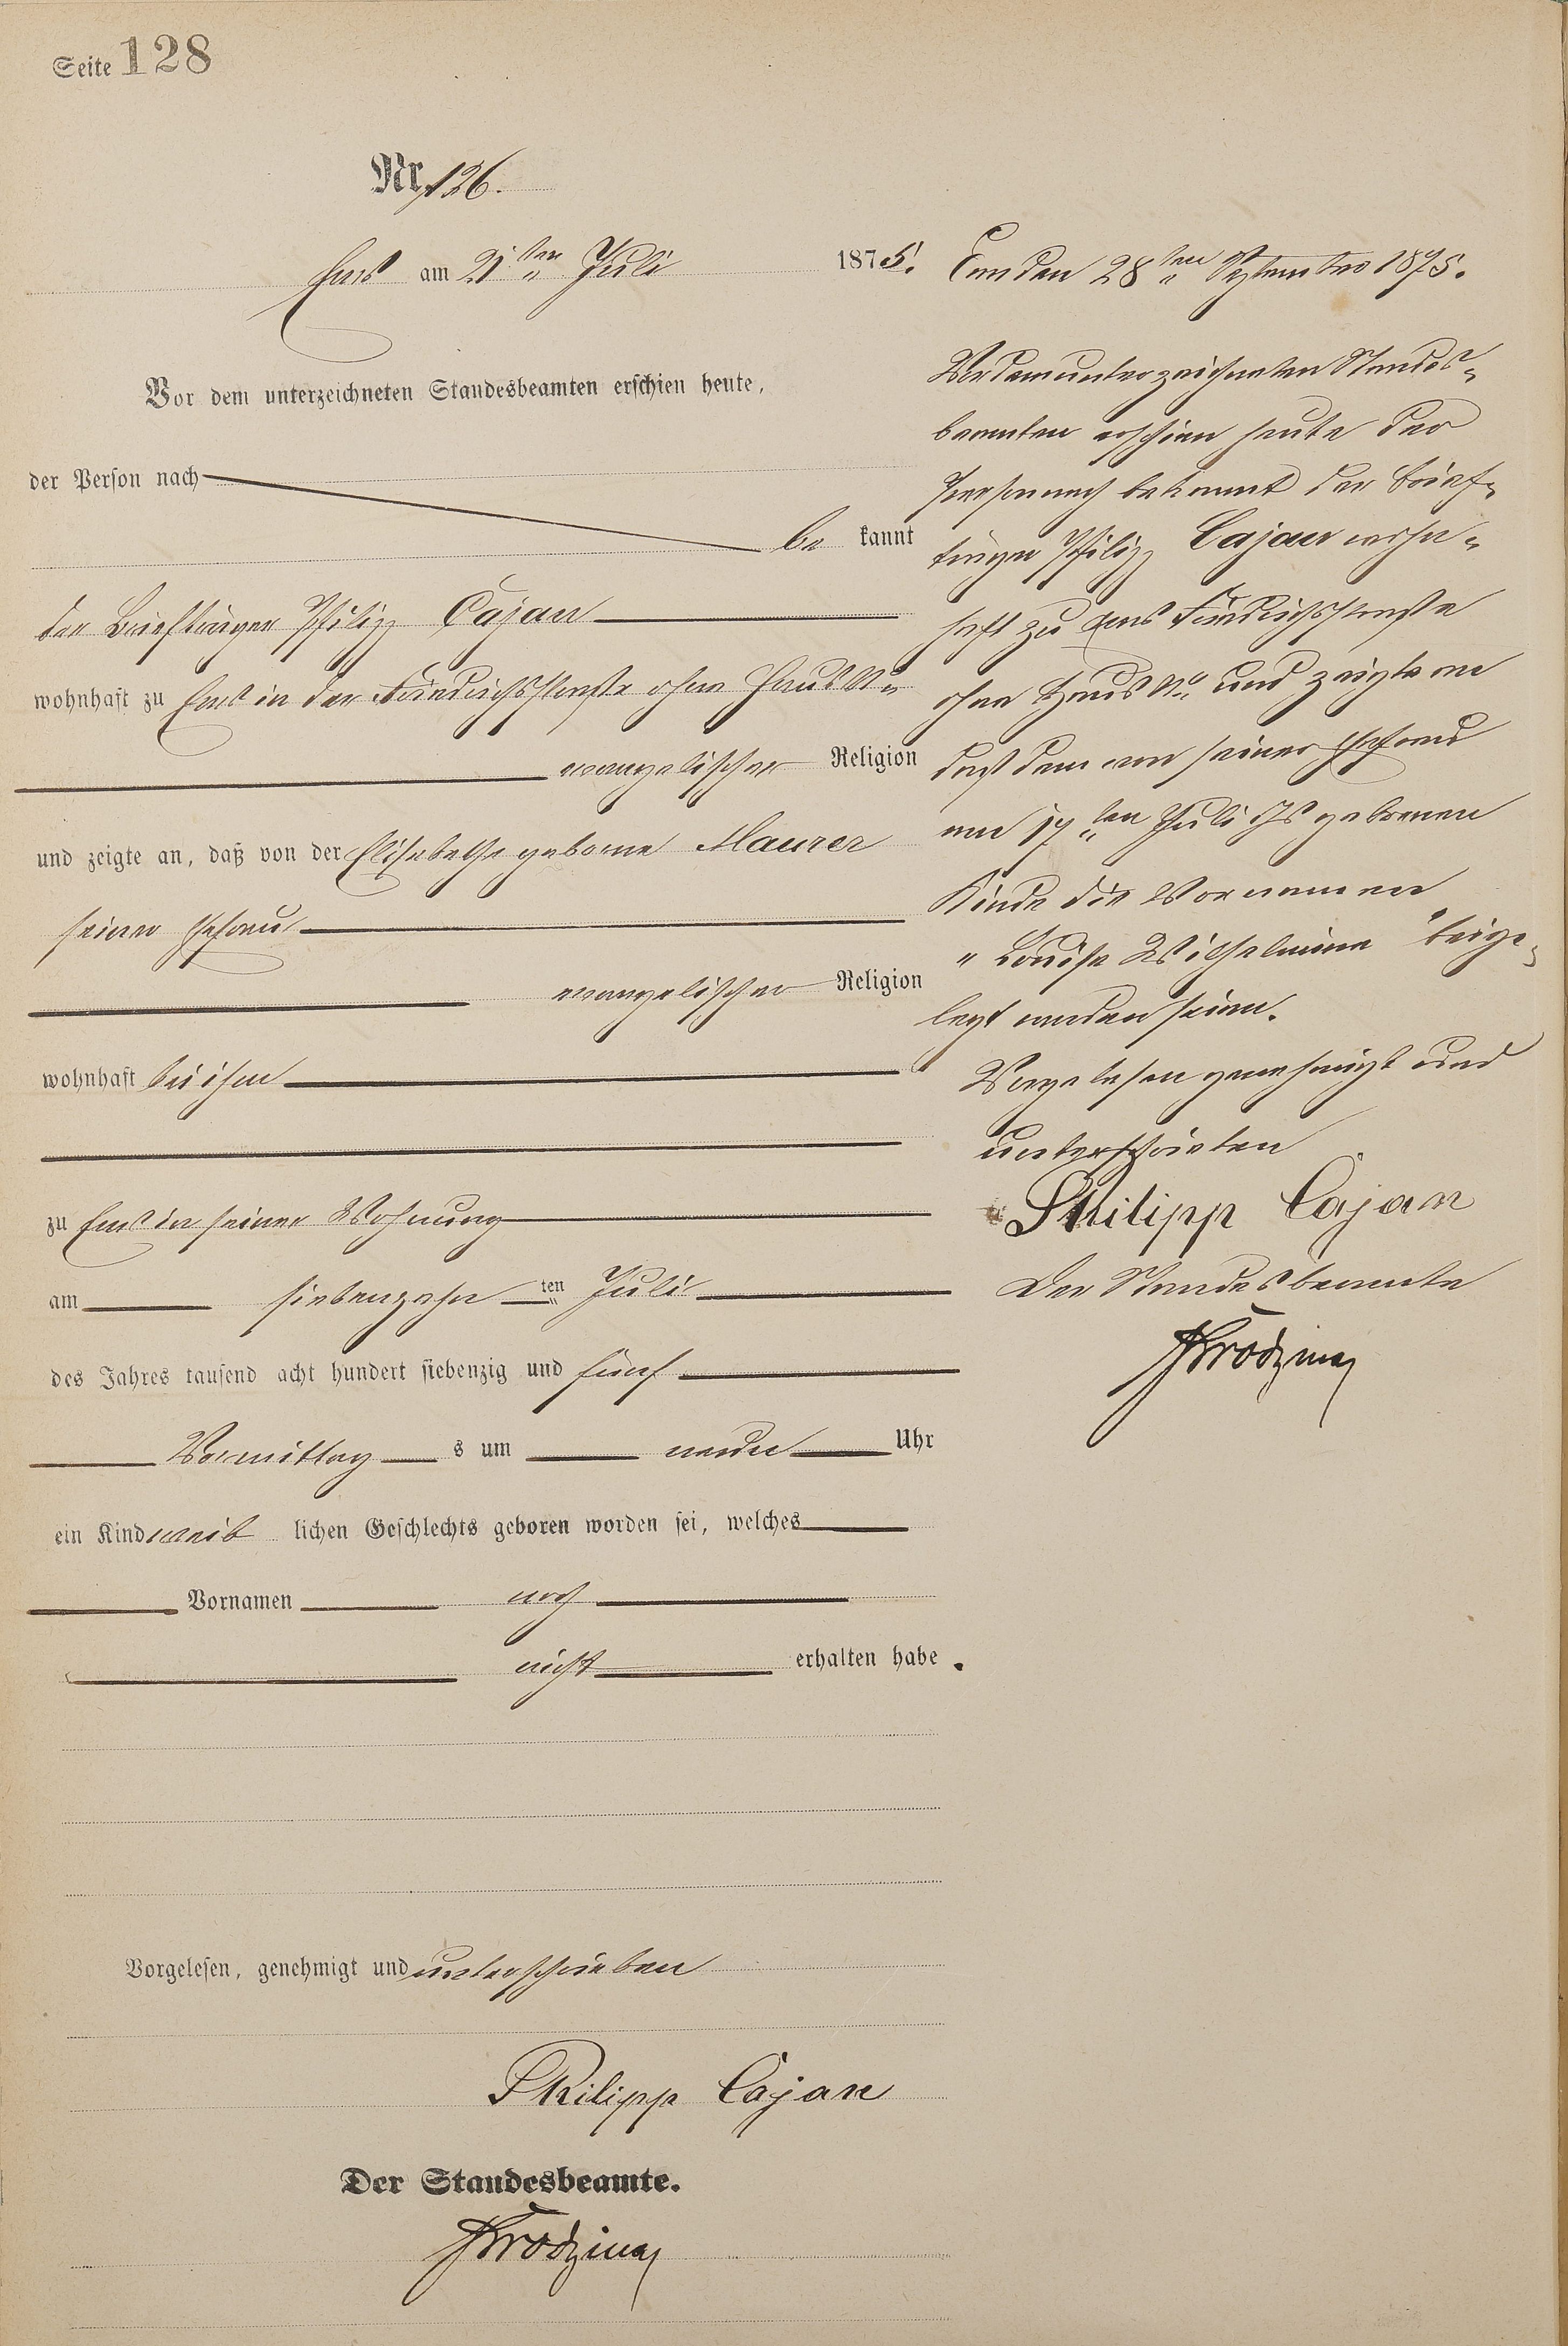 Seite 128
Nr. 126.
Ems am 21ten Juli 1875.
Vor dem unterzeichneten Standesbeamten erschien heute,
der Person nach
be kannt
der Briefträger Philipp Cajan
wohnhaft zu Ems in der Friedrichsstraße ohne Haus No
evangelischer Religion
und zeigte an, daß von der Elisabethe geborne Maurer
seiner Ehefrau
evangelischer Religion
wohnhaft bei ihm
zu Ems in seiner Wohnung
am siebenzehn ten Juli
des Jahres tausend acht hundert siebenzig und fünf
Vormittag s um neun Uhr
ein Kind weib lichen Geschlechts geboren worden sei, welches
Vornamen noch
nicht erhalten habe.
Vorgelesen, genehmigt und unterschrieben
Philipp Cajan
Der Standesbeamte.
Ems den 28ten September 1875.
Vor dem unterzeichneten Standes-
beamten erschien heute der
Person nach bekannt der Brief-
träger Philipp Cajan wohn-
haft zu Ems Friedrichsstraße
ohne Haus No und zeigte an
daß dem von seiner Ehefrau
am 17ten Juli d Js geborenen
Kinde die Vornamen
"Louise Wilhelmine" beige-
legt worden seien.
Vorgelesen genehmigt und
unterschrieben
Philipp Cajan
Der Standesbeamte